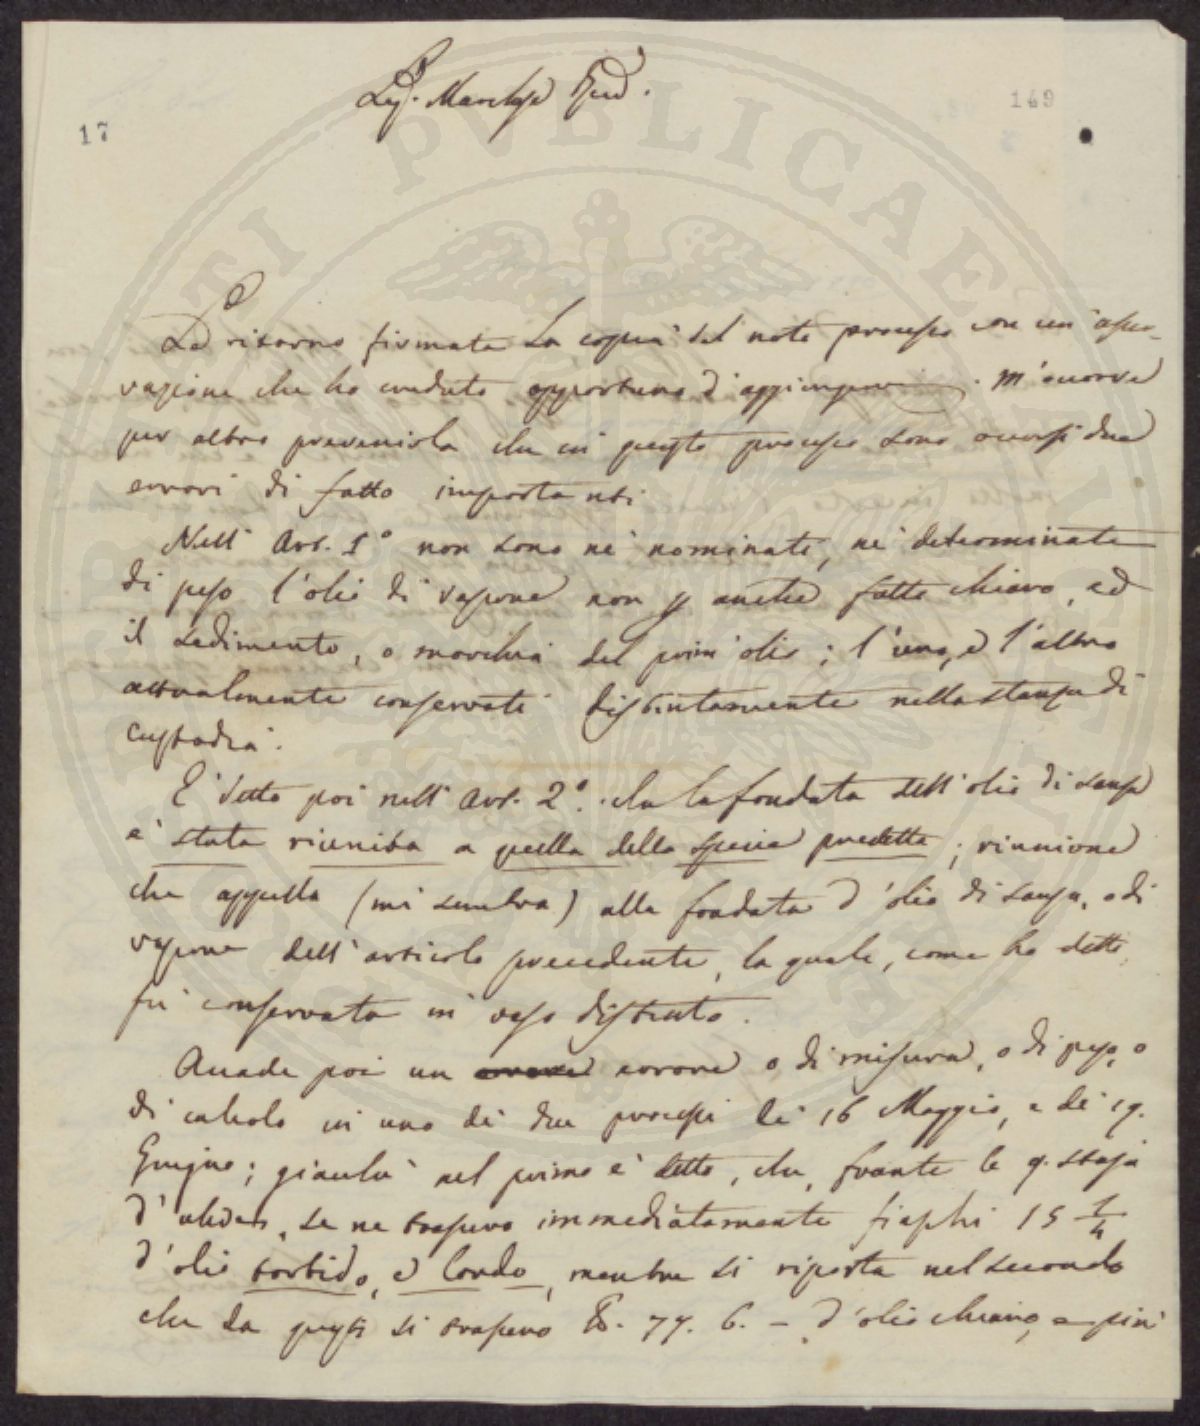 17
149
Sig. Marchese
Le ritorno firmata la copia del noto processo con un' osser-
vazione che ho creduto opportuno d'aggiungere. M'occorre
per altro prevenirla che in questo processo sono occorsi due
errori di fatto importanti.
Nell' Art. 1º non sono nè nominate, nè determinate
di peso l'olio di vapore non p anche fatto chiaro, ed
il sedimento, o morchia del prim' olio; l'uno, e l'altro
attualmente conservati distintamente nella stanza di
custodia.
È detto poi nell' Art. 2º. che la fondata dell' olio di sansa
è stata riunita a quella della specie predetta; riunione
che appella (mi sembra) alla fondata d'olio di sansa, o di
vapore dell' articolo precedente, la quale, come ho detto,
fù conservata in vaso distinto.
Accade poi un errore o di misura, o di peso, o
di calcolo in uno dei due processi dei 16 Maggio, e dei 19.
Giugno; giacchè nel primo è detto, che, frante le 9. staja
d'ulive, se ne trassero immediatamente fiaschi 15 1/4
d'olio torbido, e lordo, mentre si riporta nel secondo
che da questi si trassero lb. 77. 6. - d'olio chiaro, e più